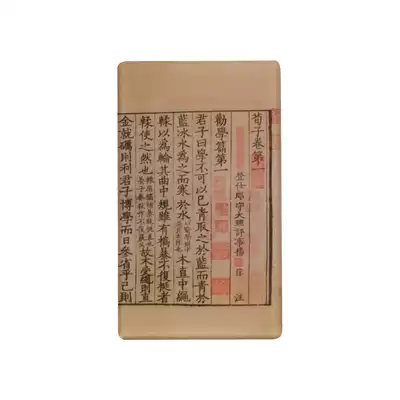 荀子卷第一
登仕郎守大理評事楊倞注
勸學篇第一
君子曰學不可以已青取之於藍而青於
藍冰水為之而寒於水木直中繩
輮以為輪其曲中規雖有槁暴不復挺者
輮使之然也故木受繩則直
金就礪則利君子博學而日參省乎己則